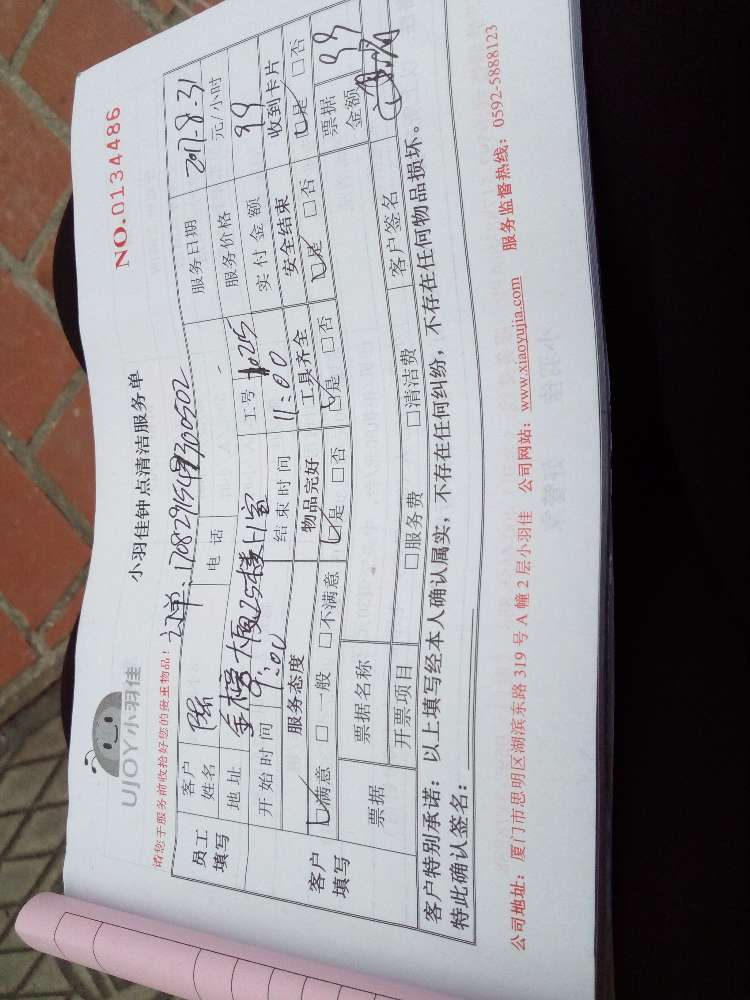 UJOY小羽佳
小羽佳钟点清洁服务单
NO.0134486
请您于服务前收拾好您的贵重物品!
订单:
员工填写
客户姓名 陈 电话 服务日期 2017-8-31
地址 金榜大厦25楼 室 工号 1025 服务价格 元/小时
开始时间 9:00 结束时间 11:00 实付金额 99
客户填写
服务态度 物品完好 工具齐全 安全结束 收到卡片
满意 □一般 □不满意 是 □否 是 □否 是 □否 是 □否
票据 票据名称 票据金额 99
开票项目 □服务费 □清洁费 客户签名
客户特别承诺:以上填写经本人确认属实,不存在任何纠纷,不存在任何物品损坏。
特此确认签名:
公司地址:厦门市思明区湖滨东路 319 号 A 幢 2 层小羽佳 公司网站:www.xiaoyujia.com 服务监督热线:0592-5888123